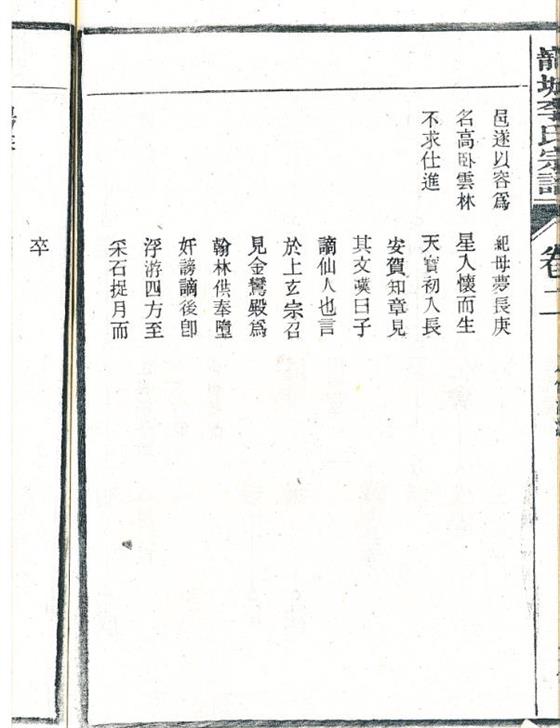 龍城李氏宗譜
卷二
邑遂以容爲
名高卧雲林
不求仕進
紀母夢長庚
星入懷而生
天寶初入長
安賀知章見
其文嘆曰子
謫仙人也言
於上玄宗召
見金鸞殿爲
翰林供奉墮
奸謗謫後卽
浮游四方至
采石捉月而
卒